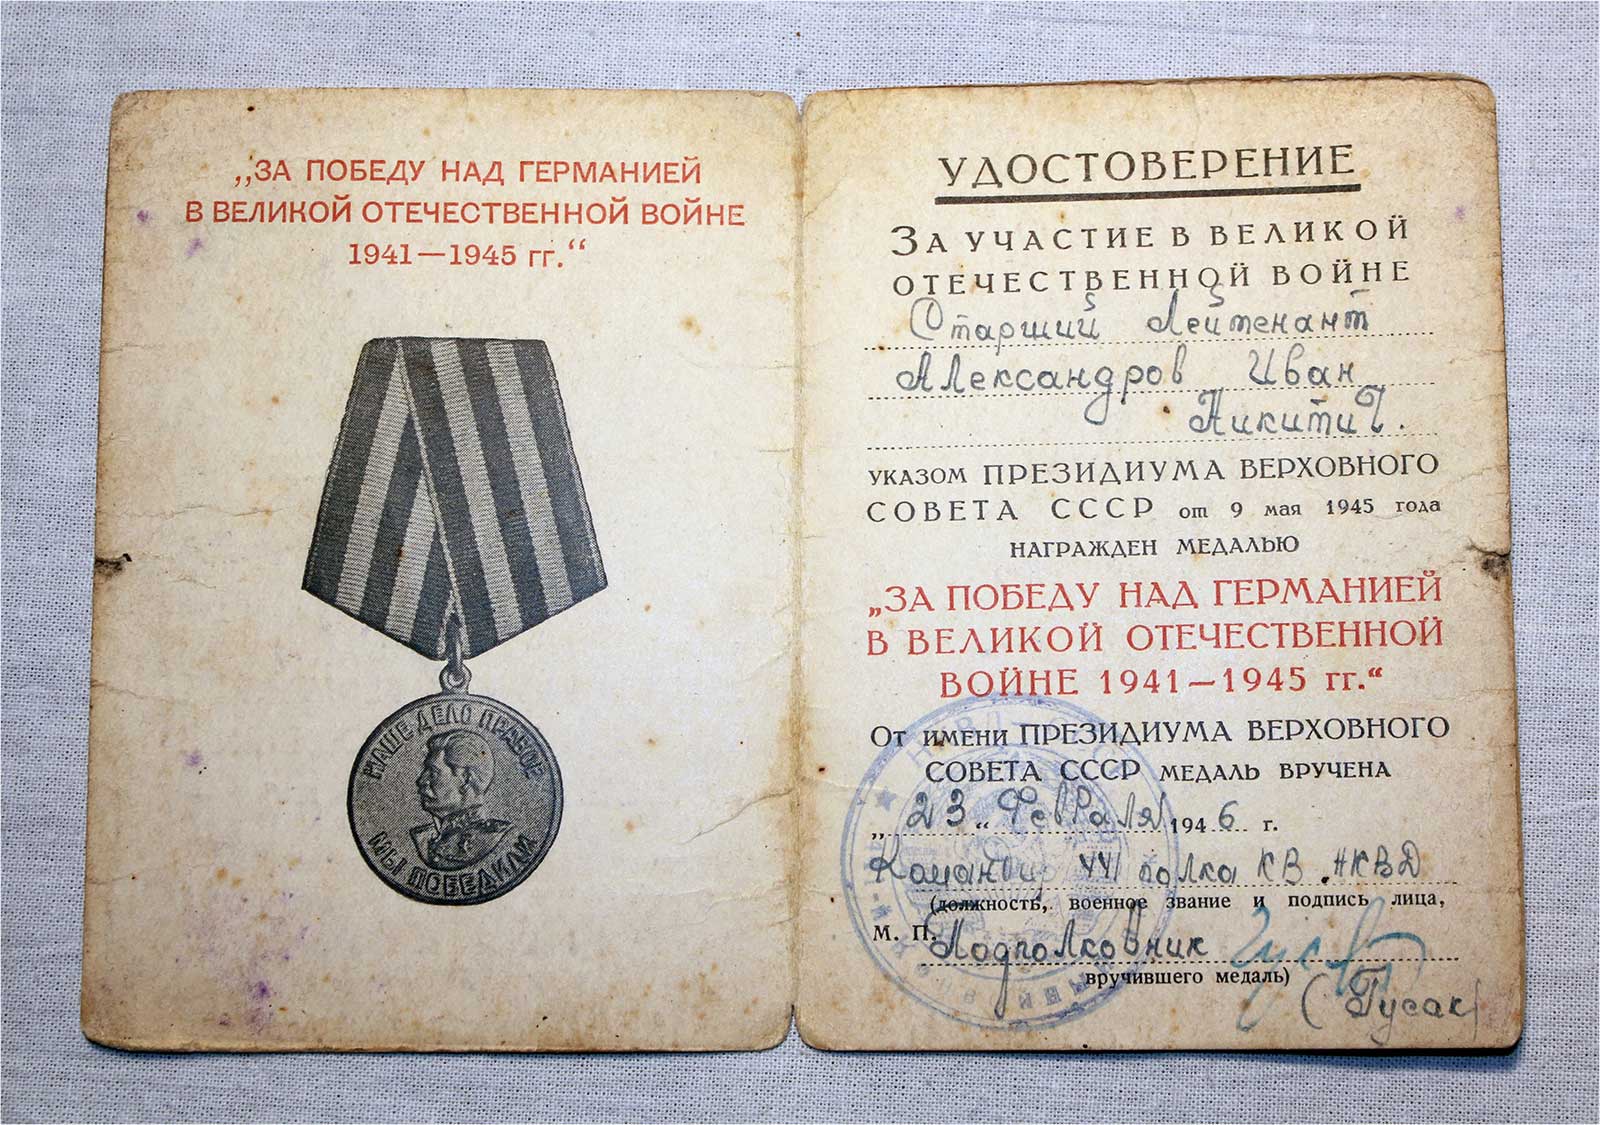 „ЗА ПОБЕДУ НАД ГЕРМАНИЕЙ
В ВЕЛИКОЙ ОТЕЧЕСТВЕННОЙ ВОЙНЕ
1941—1945 гг.“
НАШЕ ДЕЛО ПРАВОЕ
МЫ ПОБЕДИЛИ
УДОСТОВЕРЕНИЕ
ЗА УЧАСТИЕ В ВЕЛИКОЙ
ОТЕЧЕСТВЕННОЙ ВОЙНЕ
Старший Лейтенант
Александров Иван
Никитич.
УКАЗОМ ПРЕЗИДИУМА ВЕРХОВНОГО
СОВЕТА СССР от 9 мая 1945 года
НАГРАЖДЕН МЕДАЛЬЮ
„ЗА ПОБЕДУ НАД ГЕРМАНИЕЙ
В ВЕЛИКОЙ ОТЕЧЕСТВЕННОЙ
ВОЙНЕ 1941—1945 гг.“
ОТ ИМЕНИ ПРЕЗИДИУМА ВЕРХОВНОГО
СОВЕТА СССР МЕДАЛЬ ВРУЧЕНА
„23„ Февраля 1946 г.
Командир полка КВ НКВД
(должность, военное звание и подпись лица,
М. П. Подполковник
вручившего медаль)
(Гусак)